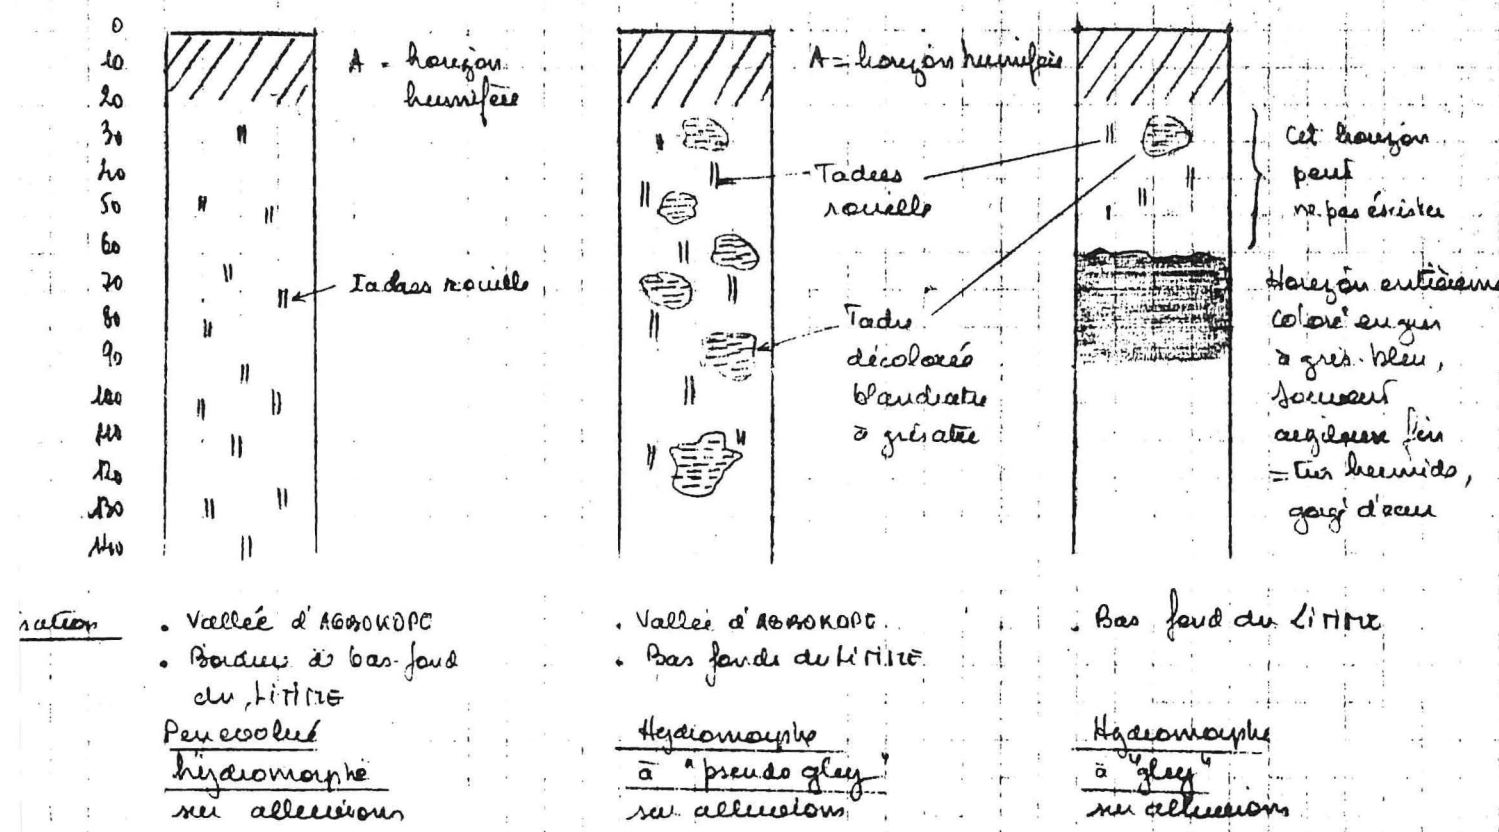 0
10
20
30
40
50
60
70
80
90
100
110
120
130
140
A = horizon
humifère
Taches rouille
A = horizon humifère
Taches
rouille
Tache
décolorés
blanchatre
à grisatre
Cet horizon
peut
ne pas éxister
Horizon entièreme
coloré en gris
à gris-bleu,
souvent
argileux fin
= très humide,
gorgé d'eau
sation
. Vallée d'AGBOKOPE
. Bordure de bas-fond
du LITIME
Peu evolué
hydromorphe
sur alluvions
. Vallée d'AGBOKOPE
. Bas fonds du LITIME
Hydromorphe
à "pseudo gley"
sur alluvions
. Bas fond du LITIME
Hydromorphe
à "gley"
sur alluvions